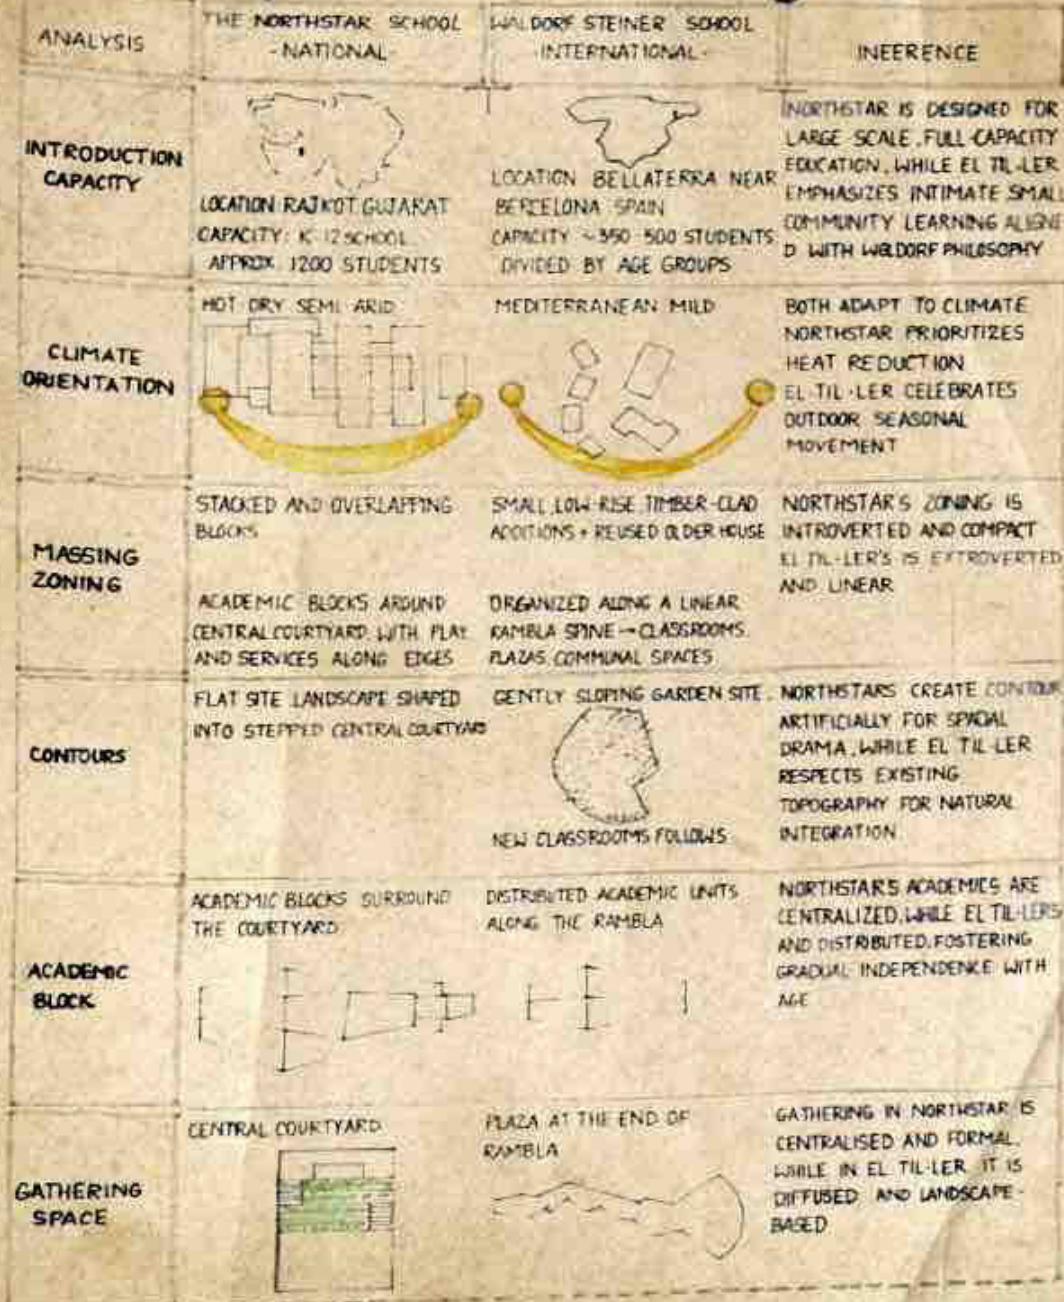 ANALYSIS
THE NORTHSTAR SCHOOL
-NATIONAL-
WALDORF STEINER SCHOOL
-INTERNATIONAL-
INFERENCE
INTRODUCTION
CAPACITY
LOCATION RAJKOT GUJARAT
CAPACITY: K-12 SCHOOL
APPROX 1200 STUDENTS
LOCATION BELLATERRA NEAR
BERCELONA SPAIN
CAPACITY ~350 500 STUDENTS
DIVIDED BY AGE GROUPS
NORTHSTAR IS DESIGNED FOR
LARGE SCALE, FULL-CAPACITY
EDUCATION, WHILE EL TIL·LER
EMPHASIZES INTIMATE SMALL
COMMUNITY LEARNING ALIGNE
D WITH WALDORF PHILOSOPHY
CLIMATE
ORIENTATION
HOT DRY SEMI ARID
MEDITERRANEAN MILD
BOTH ADAPT TO CLIMATE
NORTHSTAR PRIORITIZES
HEAT REDUCTION
EL TIL·LER CELEBRATES
OUTDOOR SEASONAL
MOVEMENT
MASSING
ZONING
STACKED AND OVERLAPPING
BLOCKS
ACADEMIC BLOCKS AROUND
CENTRAL COURTYARD WITH PLAY
AND SERVICES ALONG EDGES
SMALL LOW-RISE TIMBER-CLAD
ADDITIONS + REUSED OLDER HOUSE
ORGANIZED ALONG A LINEAR
RAMBLA SPINE → CLASSROOMS
PLAZAS, COMMUNAL SPACES
NORTHSTAR'S ZONING IS
INTROVERTED AND COMPACT
EL TIL-LER'S IS EXTROVERTED
AND LINEAR
CONTOURS
FLAT SITE LANDSCAPE SHAPED
INTO STEPPED CENTRAL COURTYARD
GENTLY SLOPING GARDEN SITE.
NEW CLASSROOMS FOLLOWS
NORTHSTARS CREATE CONTOUR
ARTIFICIALLY FOR SPADAL
DRAMA, WHILE EL TIL·LER
RESPECTS EXISTING
TOPOGRAPHY FOR NATURAL
INTEGRATION
ACADEMIC
BLOCK
ACADEMIC BLOCKS SURROUND
THE COURTYARD
DISTRIBUTED ACADEMIC UNITS
ALONG THE RAMBLA
NORTHSTARS ACADEMICS ARE
CENTRALIZED, WHILE EL TIL-LERS
AND DISTRIBUTED, FOSTERING
GRADUAL INDEPENDENCE WITH
AGE
GATHERING
SPACE
CENTRAL COURTYARD
PLAZA AT THE END OF
RAMBLA
GATHERING IN NORTHSTAR IS
CENTRALISED AND FORMAL,
WHILE IN EL TIL·LER IT IS
DIFFUSED AND LANDSCAPE-
BASED